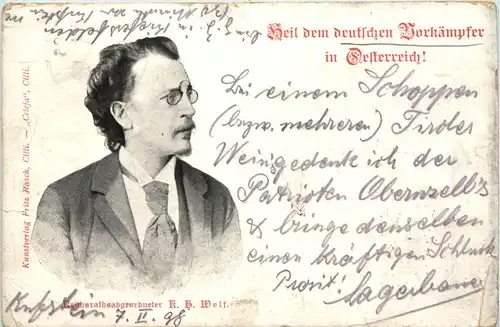 Heil dem deutschen Vorkämpfer
in Oesterreich!
Bei einem Schoppen
(bezw. mehreren) Tiroler
Wein gedenkt ich der
Patrioten Obernzell's
& bringe denselben
einen kräftigen Schluck
Prosit! Lagerbauer
Kunstverlag Fritz Rasch, Cilli. — „Celeja“, Cilli.
Reichsrathsabgeordneter K. H. Wolf.
Kufstein 7. II. 98
z. Z. in Kiefersfelden
Stunde vor Kufstein